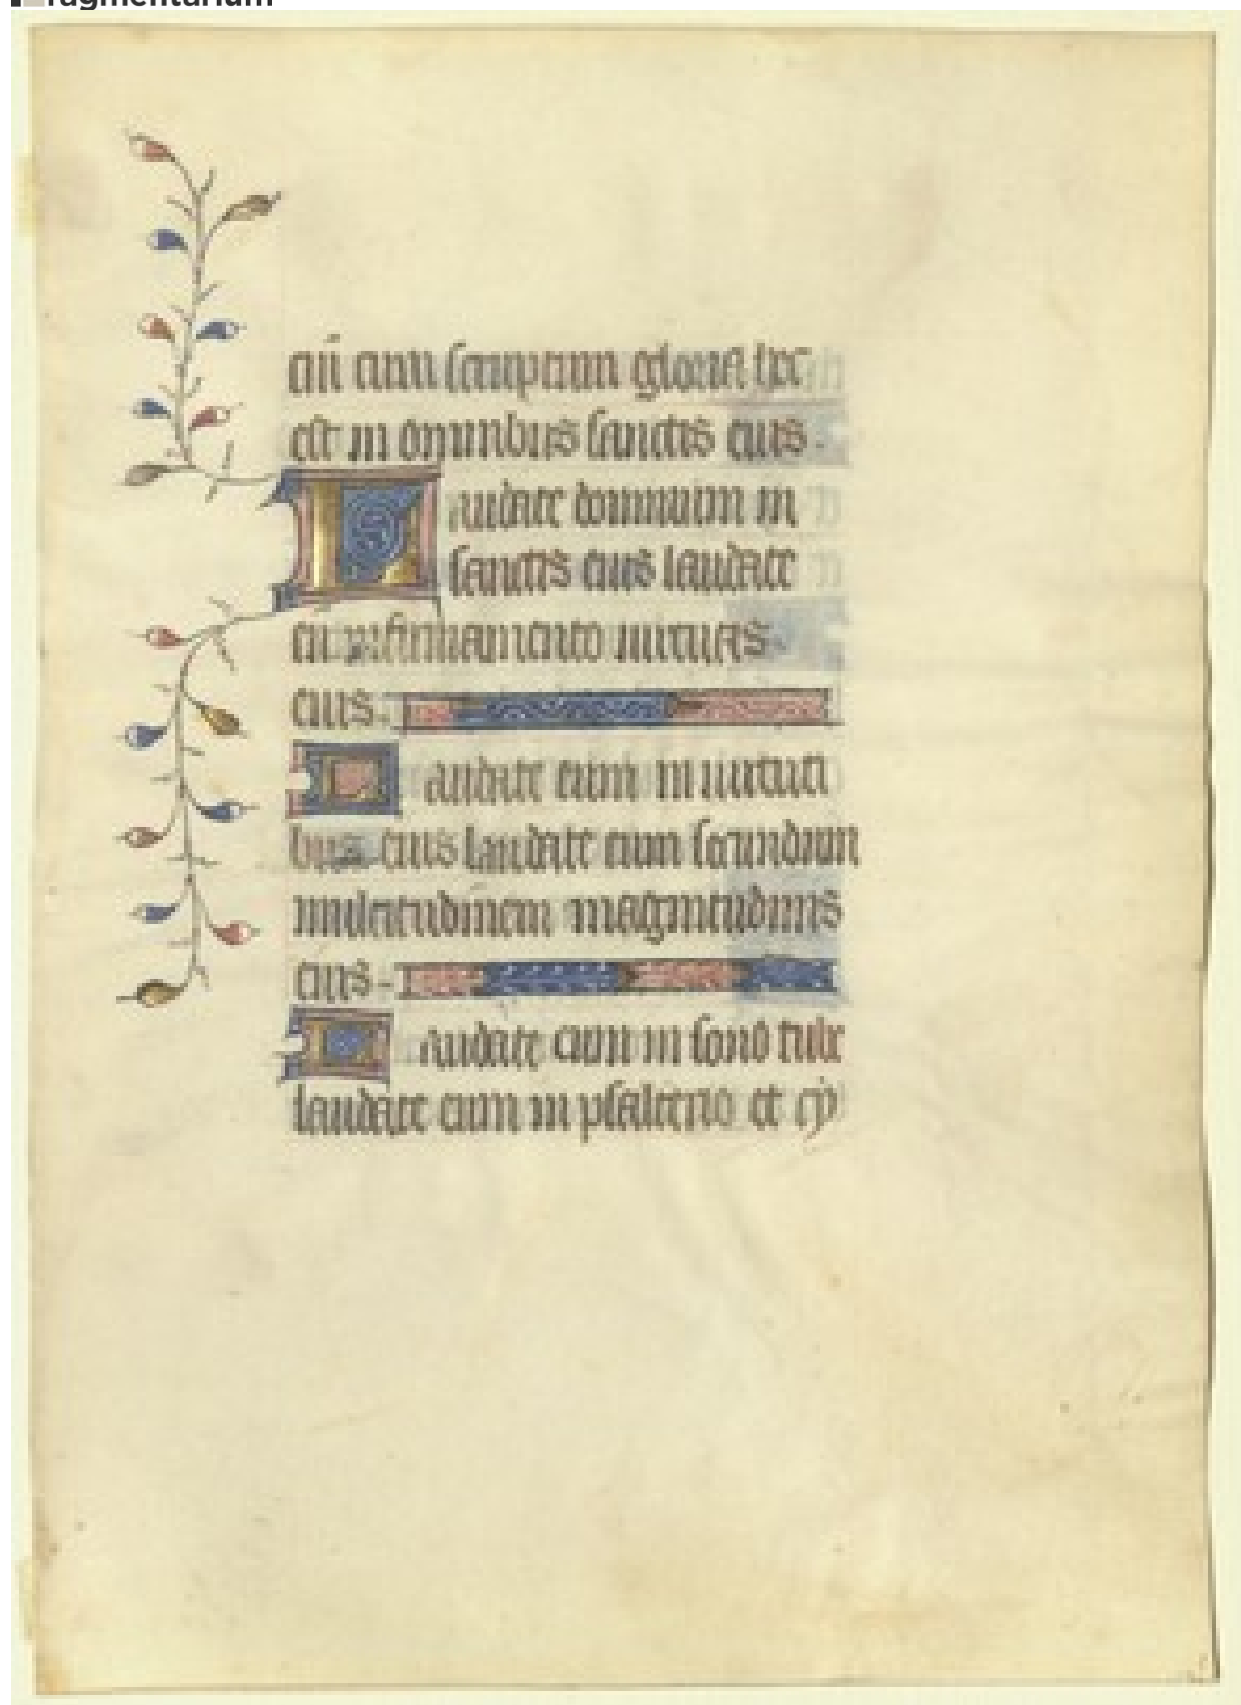 ragmentarium
ciū cum scriptum gloria hec
est in omnibus sanctis eius.
Laudate dominum in
sanctis eius laudate
eū in firmamento uirtutis
eius.
Laudate eum in uirtuti
bus eius laudate eum secundum
multitudinem magnitudinis
eius.
Laudate eum in sono tube
laudate eum in psalterio et cy